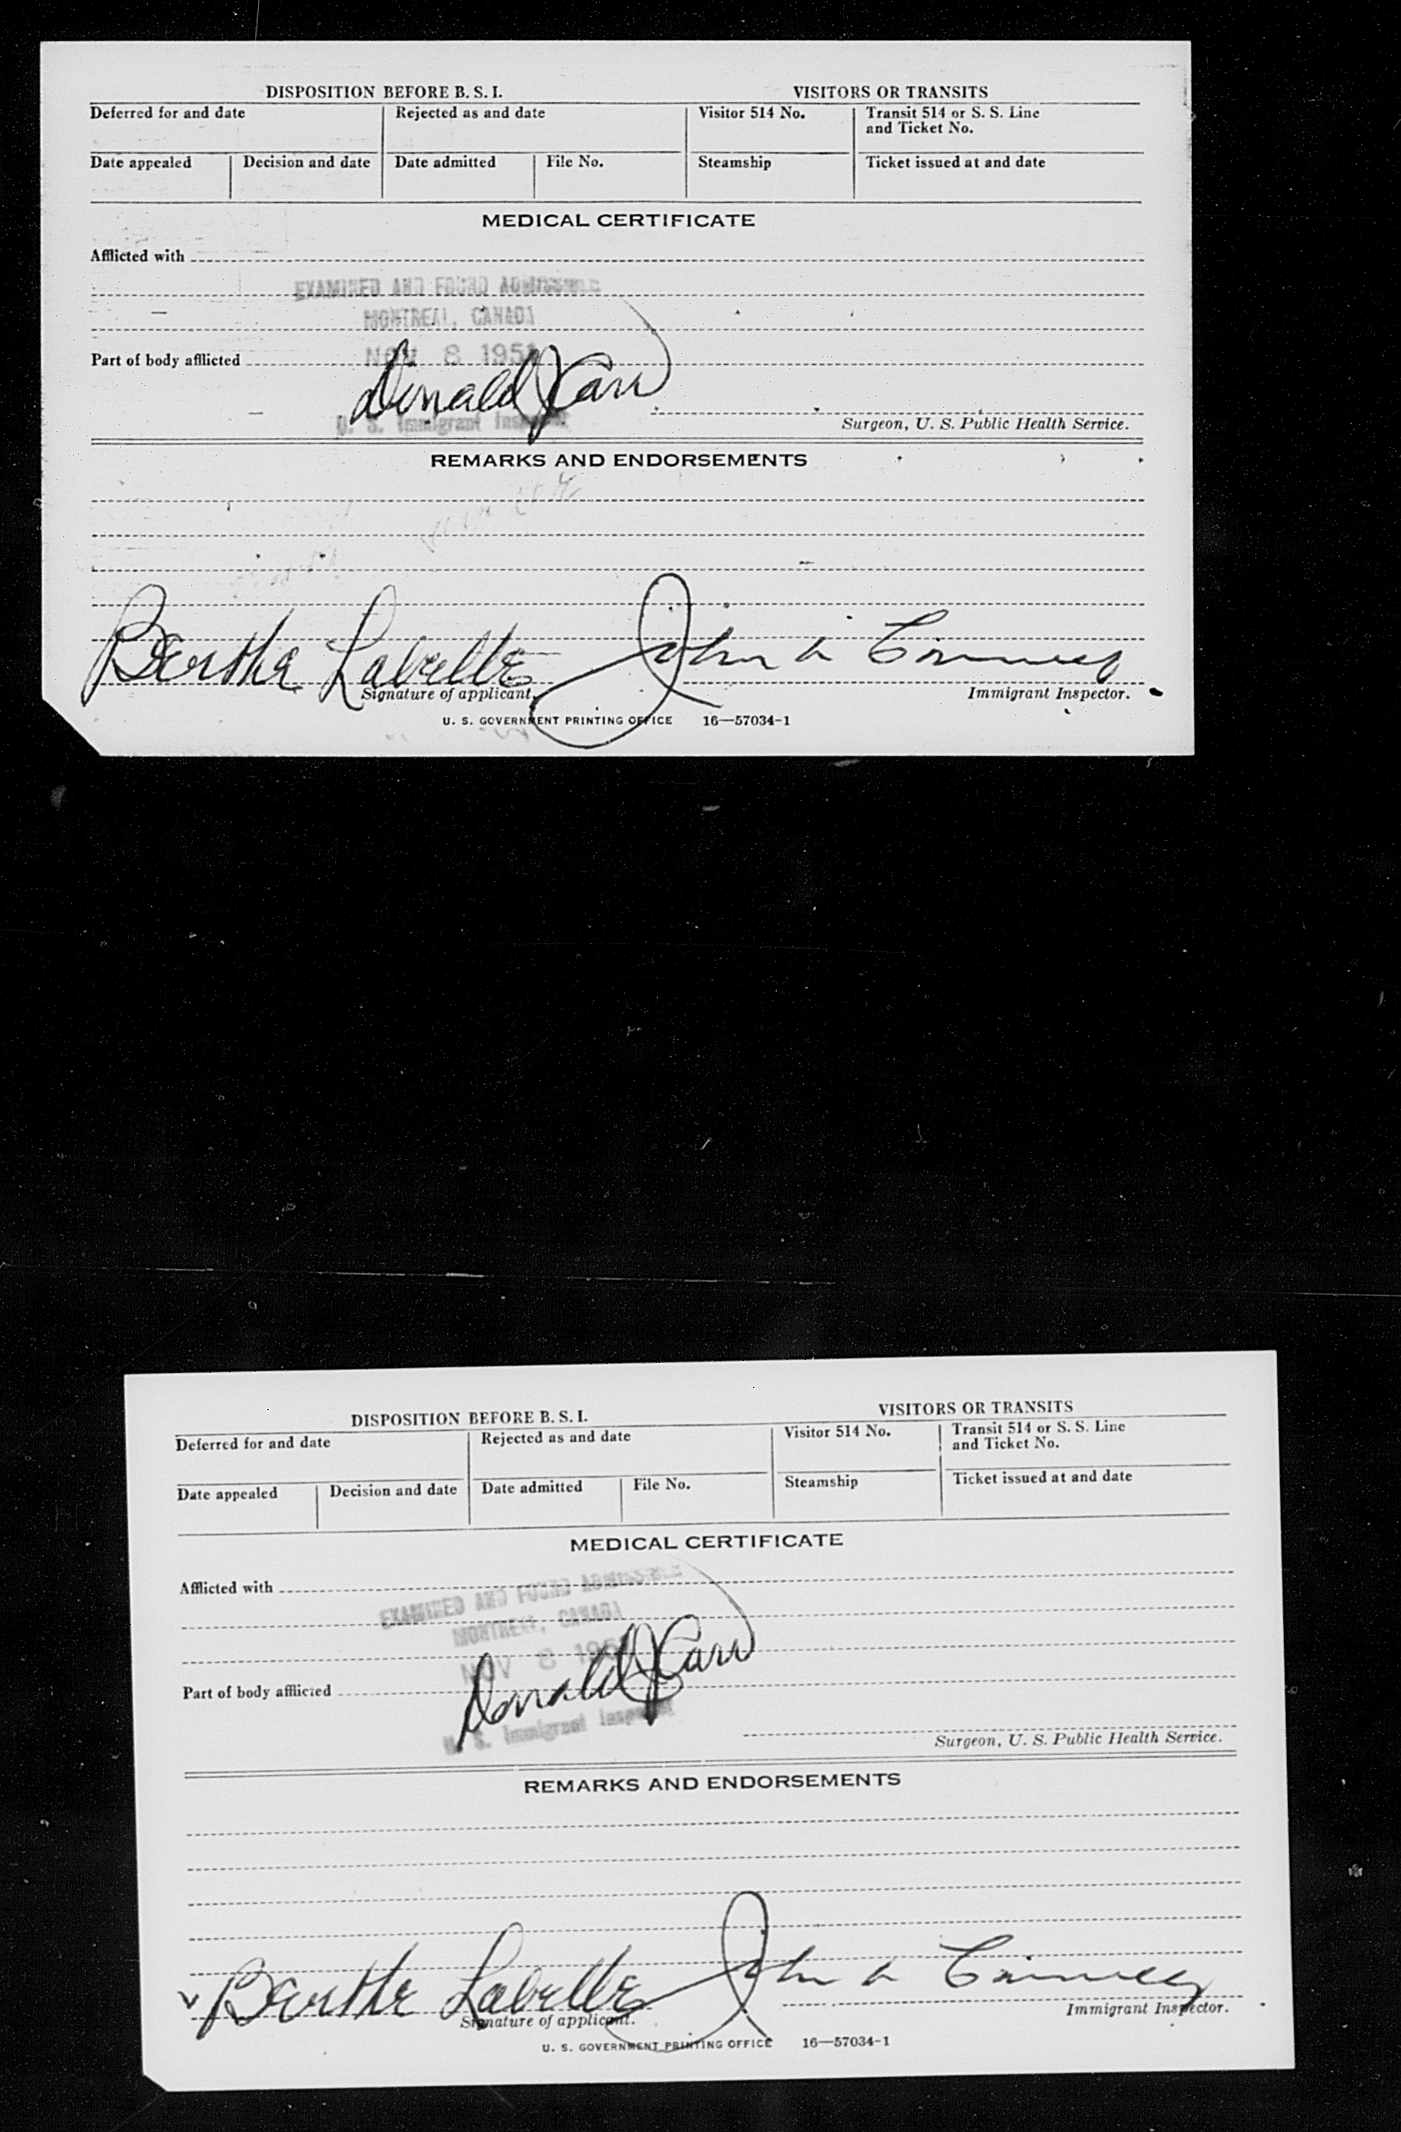 DISPOSITION BEFORE B. S. I. VISITORS OR TRANSITS
Deferred for and date Rejected as and date Visitor 514 No. Transit 514 or S. S. Line
and Ticket No.
Date appealed Decision and date Date admitted File No. Steamship Ticket issued at and date
MEDICAL CERTIFICATE
Afflicted with
EXAMINED AND FOUND ADMISSIBLE
MONTREAL, CANADA
Part of body afflicted NOV 8 195
Donald J Carr
U. S. Immigrant Inspector
Surgeon, U. S. Public Health Service.
REMARKS AND ENDORSEMENTS
Bertha Labelle John
Signature of applicant. Immigrant Inspector.
U. S. GOVERNMENT PRINTING OFFICE 16—57034-1
DISPOSITION BEFORE B. S. I. VISITORS OR TRANSITS
Deferred for and date Rejected as and date Visitor 514 No. Transit 514 or S. S. Line
and Ticket No.
Date appealed Decision and date Date admitted File No. Steamship Ticket issued at and date
MEDICAL CERTIFICATE
Afflicted with
EXAMINED AND FOUND ADMISSIBLE
MONTREAL, CANADA
NOV 8 195
Part of body afflicted
Donald J Carr
U. S. Immigrant Inspector
Surgeon, U. S. Public Health Service.
REMARKS AND ENDORSEMENTS
Bertha Labelle John
Signature of applicant. Immigrant Inspector.
U. S. GOVERNMENT PRINTING OFFICE 16—57034-1